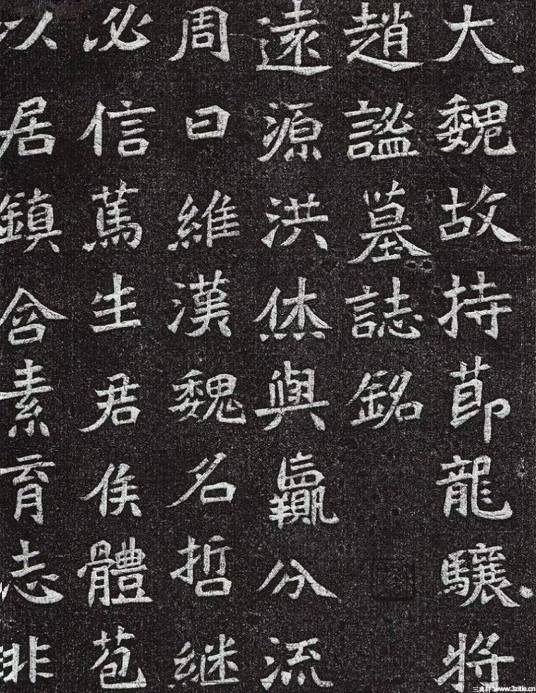 大魏故持莭龍驤将
趙謐墓誌銘
遠源洪休與嬴分流
周曰維漢魏名哲继
必信篤生君侯體苞
以居鎮含素育志非
www.3zitie.cn